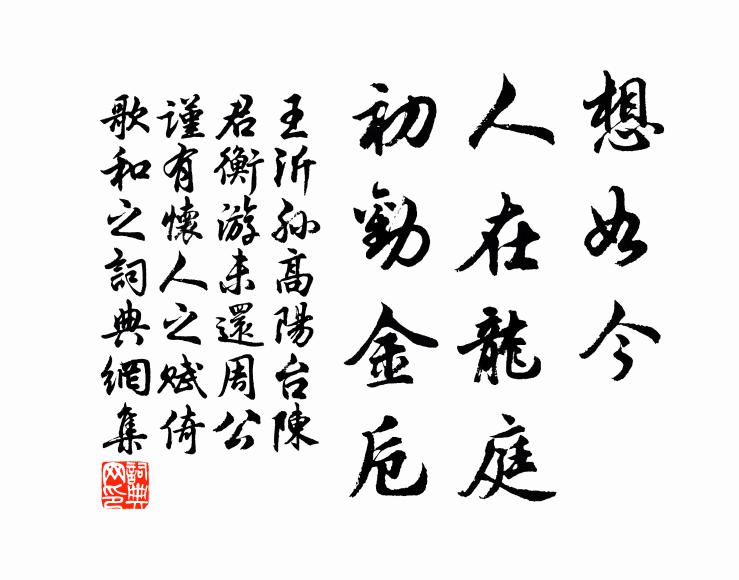 想如今
人在龍庭
初勸金卮
王沂孫高陽台陳
君衡游未還周公
謹有懷人之賦倚
歌和之詞典網集
詞典網印